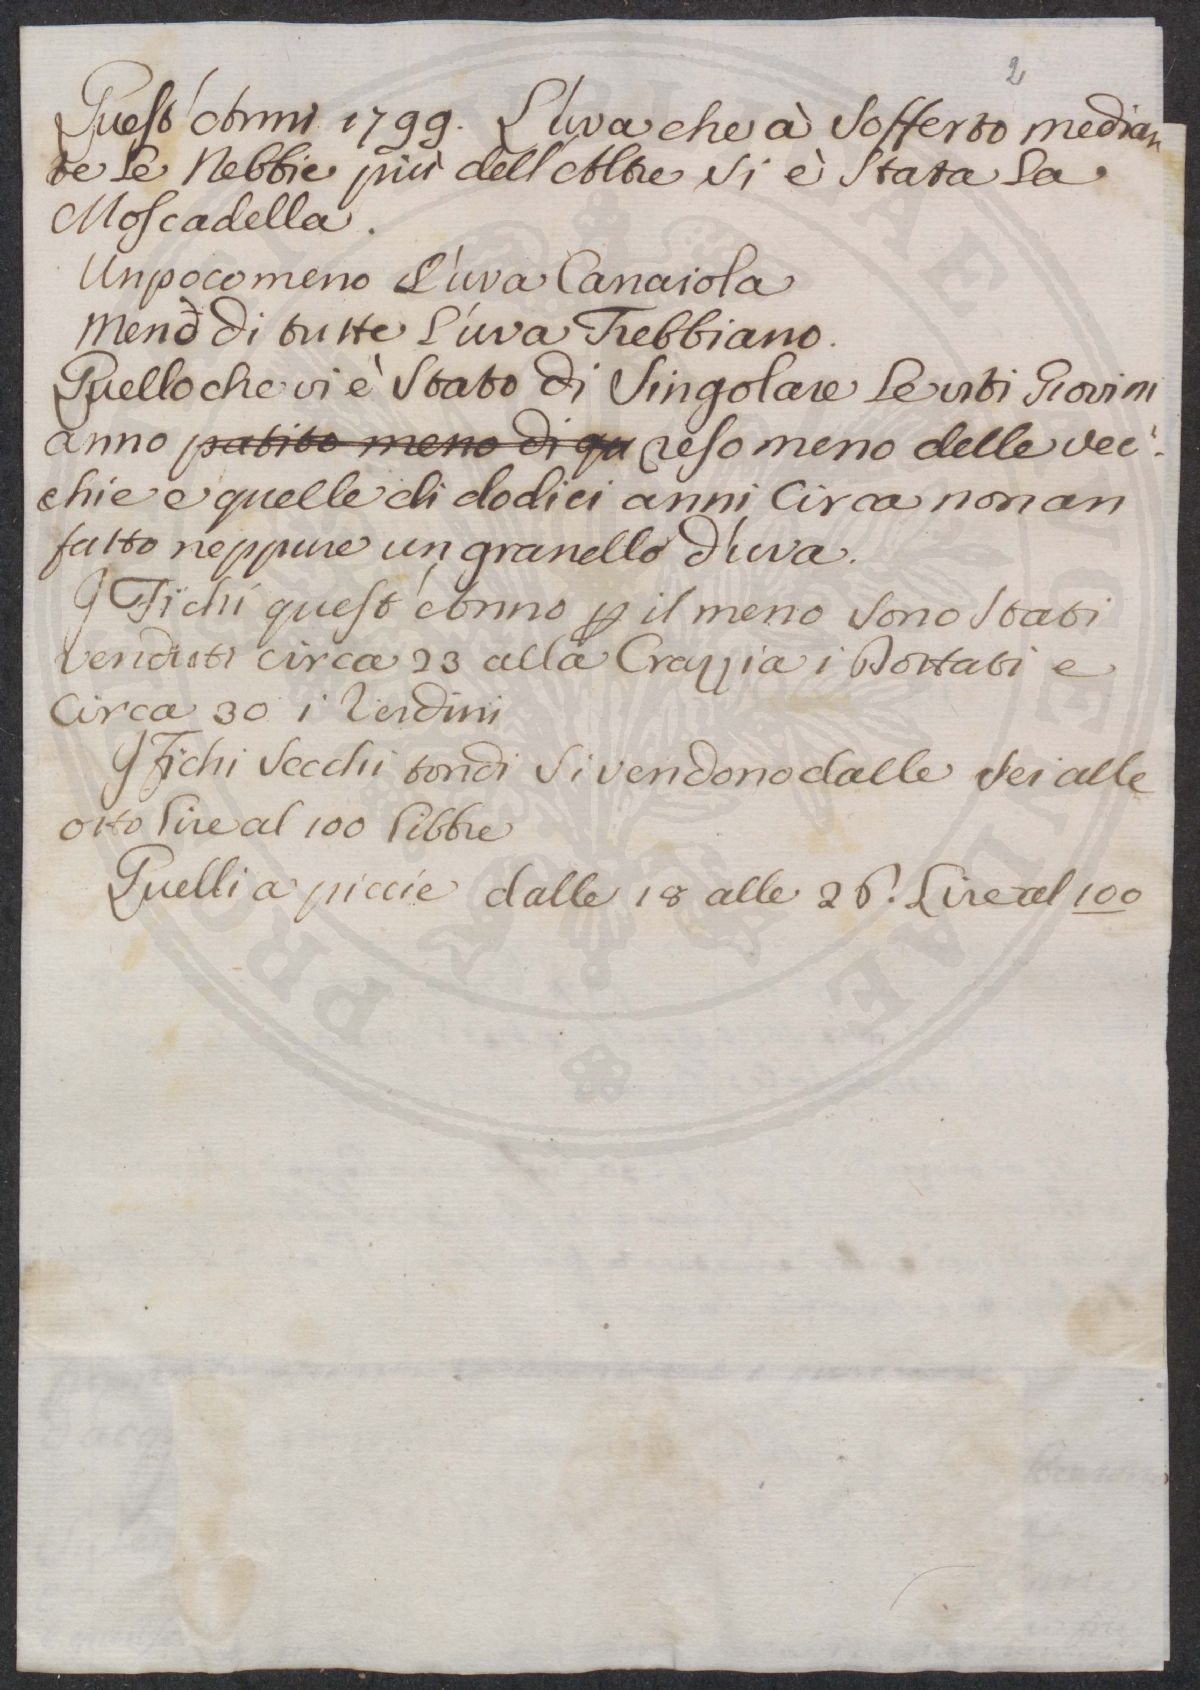 2
Quest'Anni 1799. L'uva che à Sofferto median
te Le Nebbie più dell Altre Si è Stata La
Moscadella.
Unpocomeno L'uva Canaiola
Meno di tutte L'uva Trebbiano.
Quello che vi è Stato di Singolare Le viti Giovini
anno patito meno di qu reso meno delle vec:
chie e quelle di dodici anni Circa non an
fatto neppure un granello d'uva.
I Fichi quest'Anno p il meno Sono Stati
Venduti circa 23 alla Crazzia i Dottati e
Circa 30 i Verdini
I Fichi Secchi tondi Si vendono dalle Sei alle
otto Lire al 100 Libbre
Quelli a piccie dalle 18 alle 26. Lire al 100
PRO